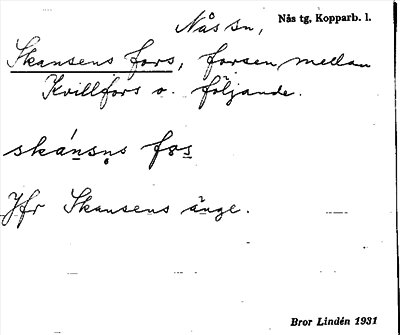 Nås sn, Nås tg, Kopparb. l.
Skansens fors, forsen mellan
Kvillfors o. följande.
skánsn̥s fos
Jfr Skansens änge.
Bror Lindén 1931